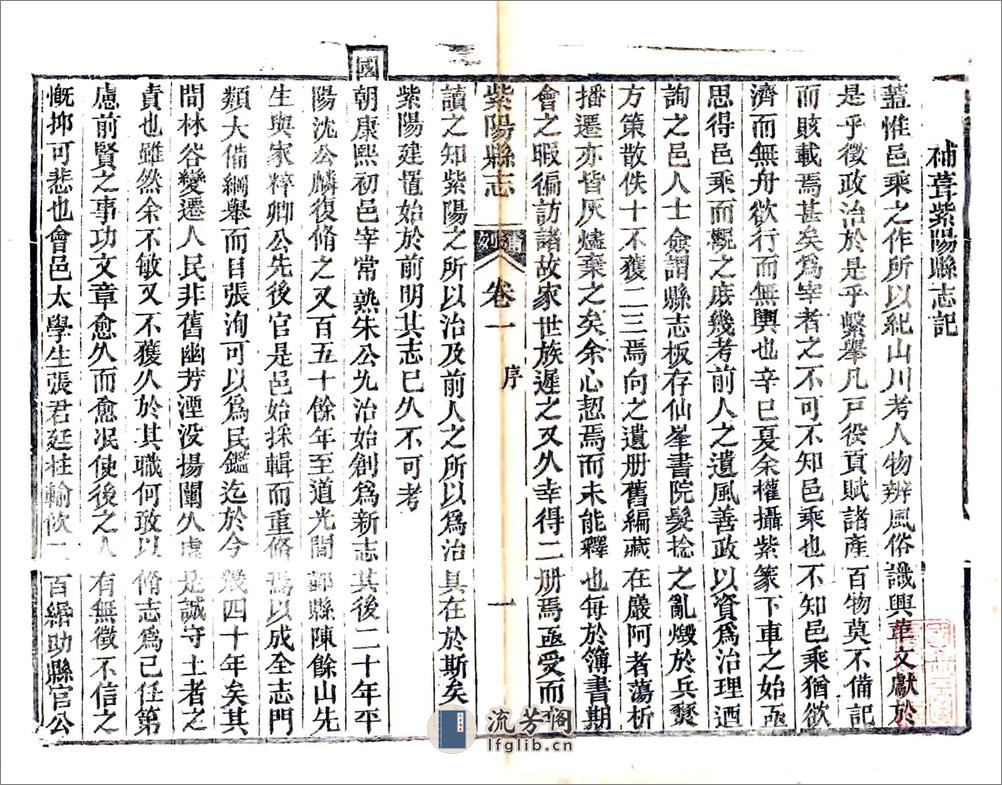 補葺紫陽縣志記
蓋惟邑乘之作所以紀山川考人物辨風俗識興革文獻於
是乎徵政治於是乎繫舉凡戸役貢賦諸產百物莫不備記
而賅載焉甚矣為宰者之不可不知邑乘也不知邑乘猶欲
濟而無舟欲行而無輿也辛巳夏余權攝紫篆下車之始亟
思得邑乘而覩之庶幾考前人之遺風善政以資為治理迺
詢之邑人士僉謂縣志板存仙峯書院髮捻之亂燬於兵燹
方策散佚十不獲二三焉向之遺册舊編藏在巖阿者蕩析
播遷亦皆灰燼棄之矣余心惄焉而未能釋也每於簿書期
會之暇徧訪諸故家世族遲之又久幸得二册焉亟受而
紫陽縣志
卷一
序
一
讀之知紫陽之所以治及前人之所以為治具在於斯矣
紫陽建置始於前明其志已久不可考
國
朝康熙初邑宰常熟朱公九治始創為新志其後二十年平
陽沈公麟復脩之又百五十餘年至道光間鄞縣陳餘山先
生與家粹卿公先後官是邑始採輯而重脩焉以成全志門
類大備綱舉而目張洵可以為民鑑迄於今幾四十年矣其
間林谷變遷人民非舊幽芳湮没揚闡久虛是誠守土者之
責也雖然余不敏又不獲久於其職何敢以脩志為己任第
慮前賢之事功文章愈久而愈泯使後之人有無徵不信之
慨抑可悲也會邑太學生張君廷柱輸饮二百緡助縣官公
流芳閣
lfglib.cn